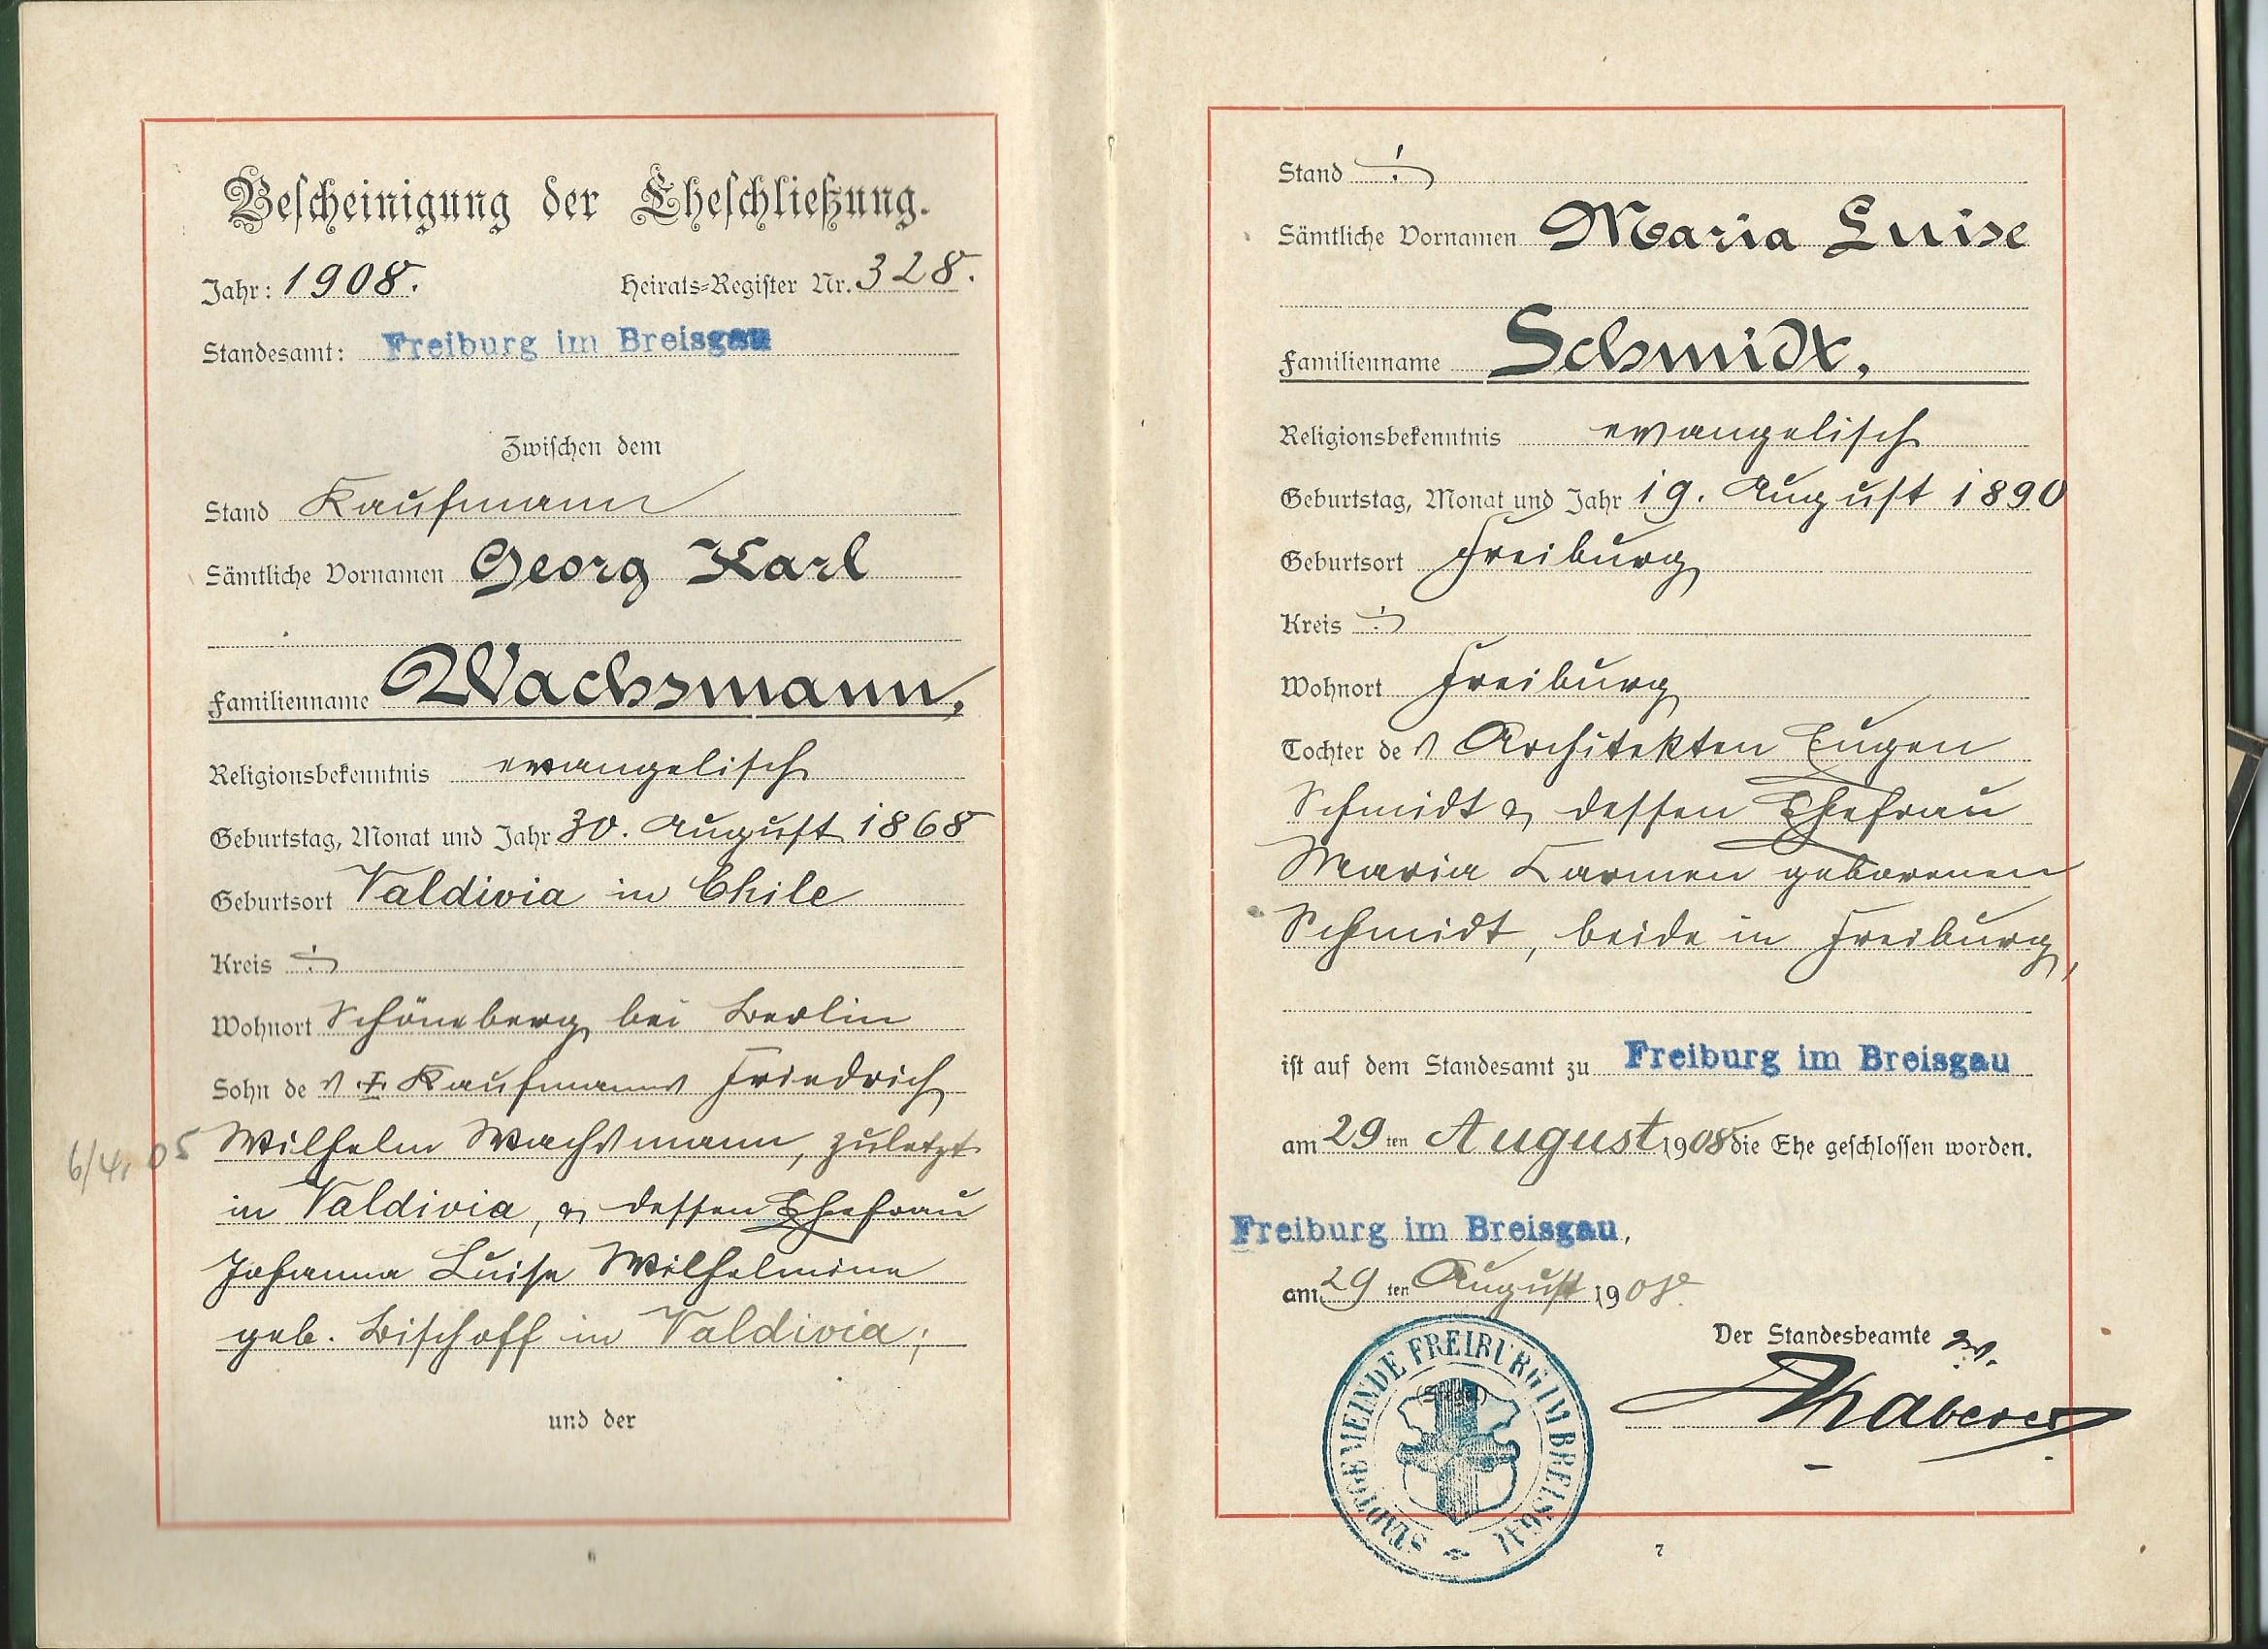 Bescheinigung der Eheschließung.
Jahr: 1908. Heirats-Register Nr. 328.
Standesamt: Freiburg im Breisgau
Zwischen dem
Stand Kaufmann
Sämtliche Vornamen Georg Karl
Familienname Wachsmann,
Religionsbekenntnis evangelisch
Geburtstag, Monat und Jahr 30. August 1868
Geburtsort Valdivia in Chile
Kreis
Wohnort Schöneberg bei Berlin
Sohn des † Kaufmanns Friedrich
6/4. 05
Wilhelm Wachsmann, zuletzt
in Valdivia, & dessen Ehefrau
Johanna Luise Wilhelmine
geb. Bischoff in Valdivia;
und der
6
Stand
Sämtliche Vornamen Maria Luise
Familienname Schmidt,
Religionsbekenntnis evangelisch
Geburtstag, Monat und Jahr 19. August 1890
Geburtsort Freiburg
Kreis
Wohnort Freiburg
Tochter des Architekten Eugen
Schmidt & dessen Ehefrau
Maria Carmen geborenen
Schmidt, beide in Freiburg,
ist auf dem Standesamt zu Freiburg im Breisgau
am 29ten August 1908 die Ehe geschlossen worden.
Freiburg im Breisgau,
am 29ten August 1908.
Der Standesbeamte
(Siegel)
STADTGEMEINDE FREIBURG IM BREISGAU
7